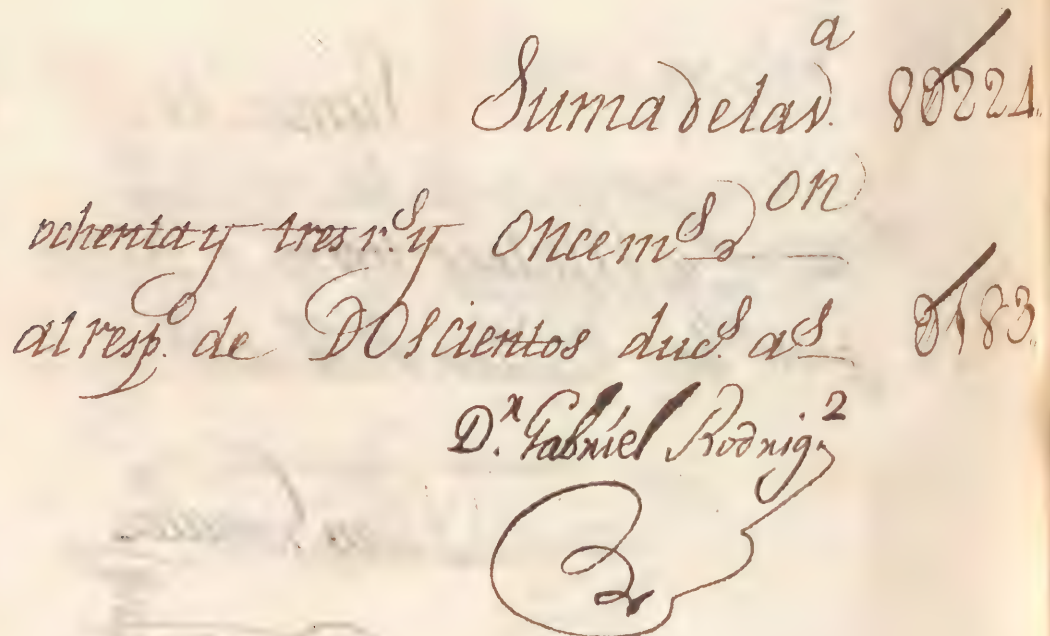 Suma de la v.ᵃ 8Ø224.
ochenta y tres r.ˢ y once m.ˢ d. v.ᵒⁿ
al resp.ᵒ de Doscientos duc.ˢ a.ˢ Ø183.
D.ⁿ Gabriel Rodrig.ᶻ